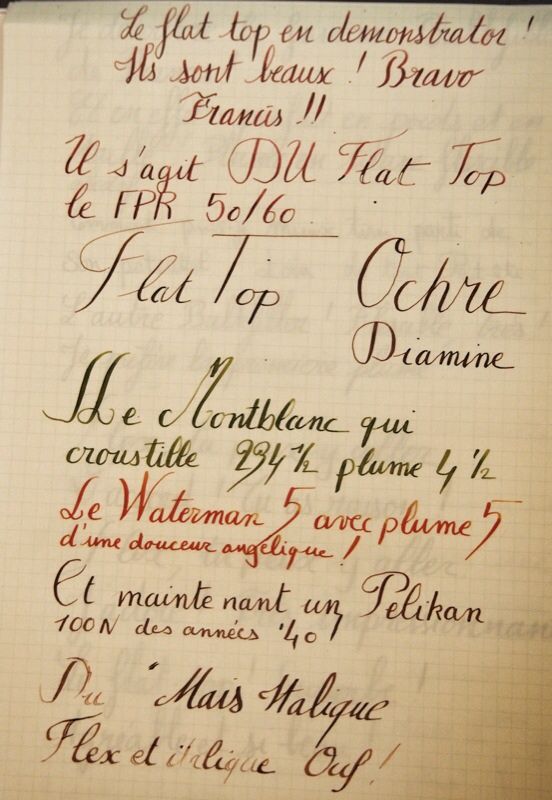 Le flat top en demonstrator !
Ils sont beaux ! Bravo
Francis !!
Il s'agit DU Flat Top
le FPR 50/60
Flat Top Ochre
Diamine
Le Montblanc qui
croustille 234 1/2 plume 4 1/2
Le Waterman 5 avec plume 5
d'une douceur angelique !
Et maintenant un Pelikan
100N des années '40 !
Du "Mais Italique
Flex et italique Ouf !